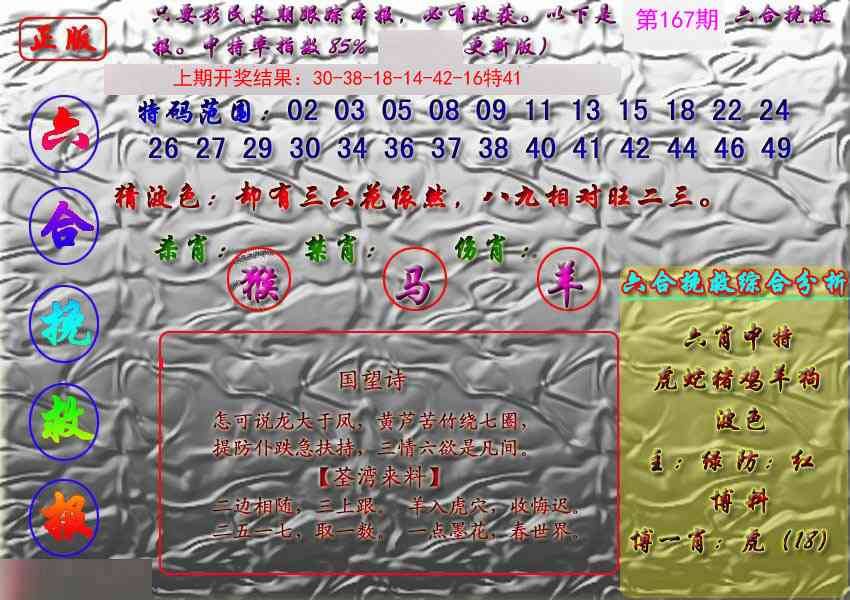 正版
只要彩民长期跟踪本报，必有收获。以下是 第167期 六合挽救
报。中特率指数85% 更新版）
上期开奖结果：30-38-18-14-42-16特41
特码范围：02 03 05 08 09 11 13 15 18 22 24
26 27 29 30 34 36 37 38 40 41 42 44 46 49
猜波色：却有三六花依然，八九相对旺二三。
杀肖：猴 禁肖：马 伤肖：羊
六
合
挽
救
报
国望诗
怎可说龙大于凤，黄芦苦竹绕七圈，
提防仆跌急扶持，三情六欲是凡间。
【荃湾来料】
二边相随，三上跟。 羊入虎穴，收悔迟。
二五一七，取一数。 一点墨花，春世界。
六合挽救综合分析
六肖中特
虎蛇猪鸡羊狗
波色
主：绿 防：红
博料
博一肖：虎（18）